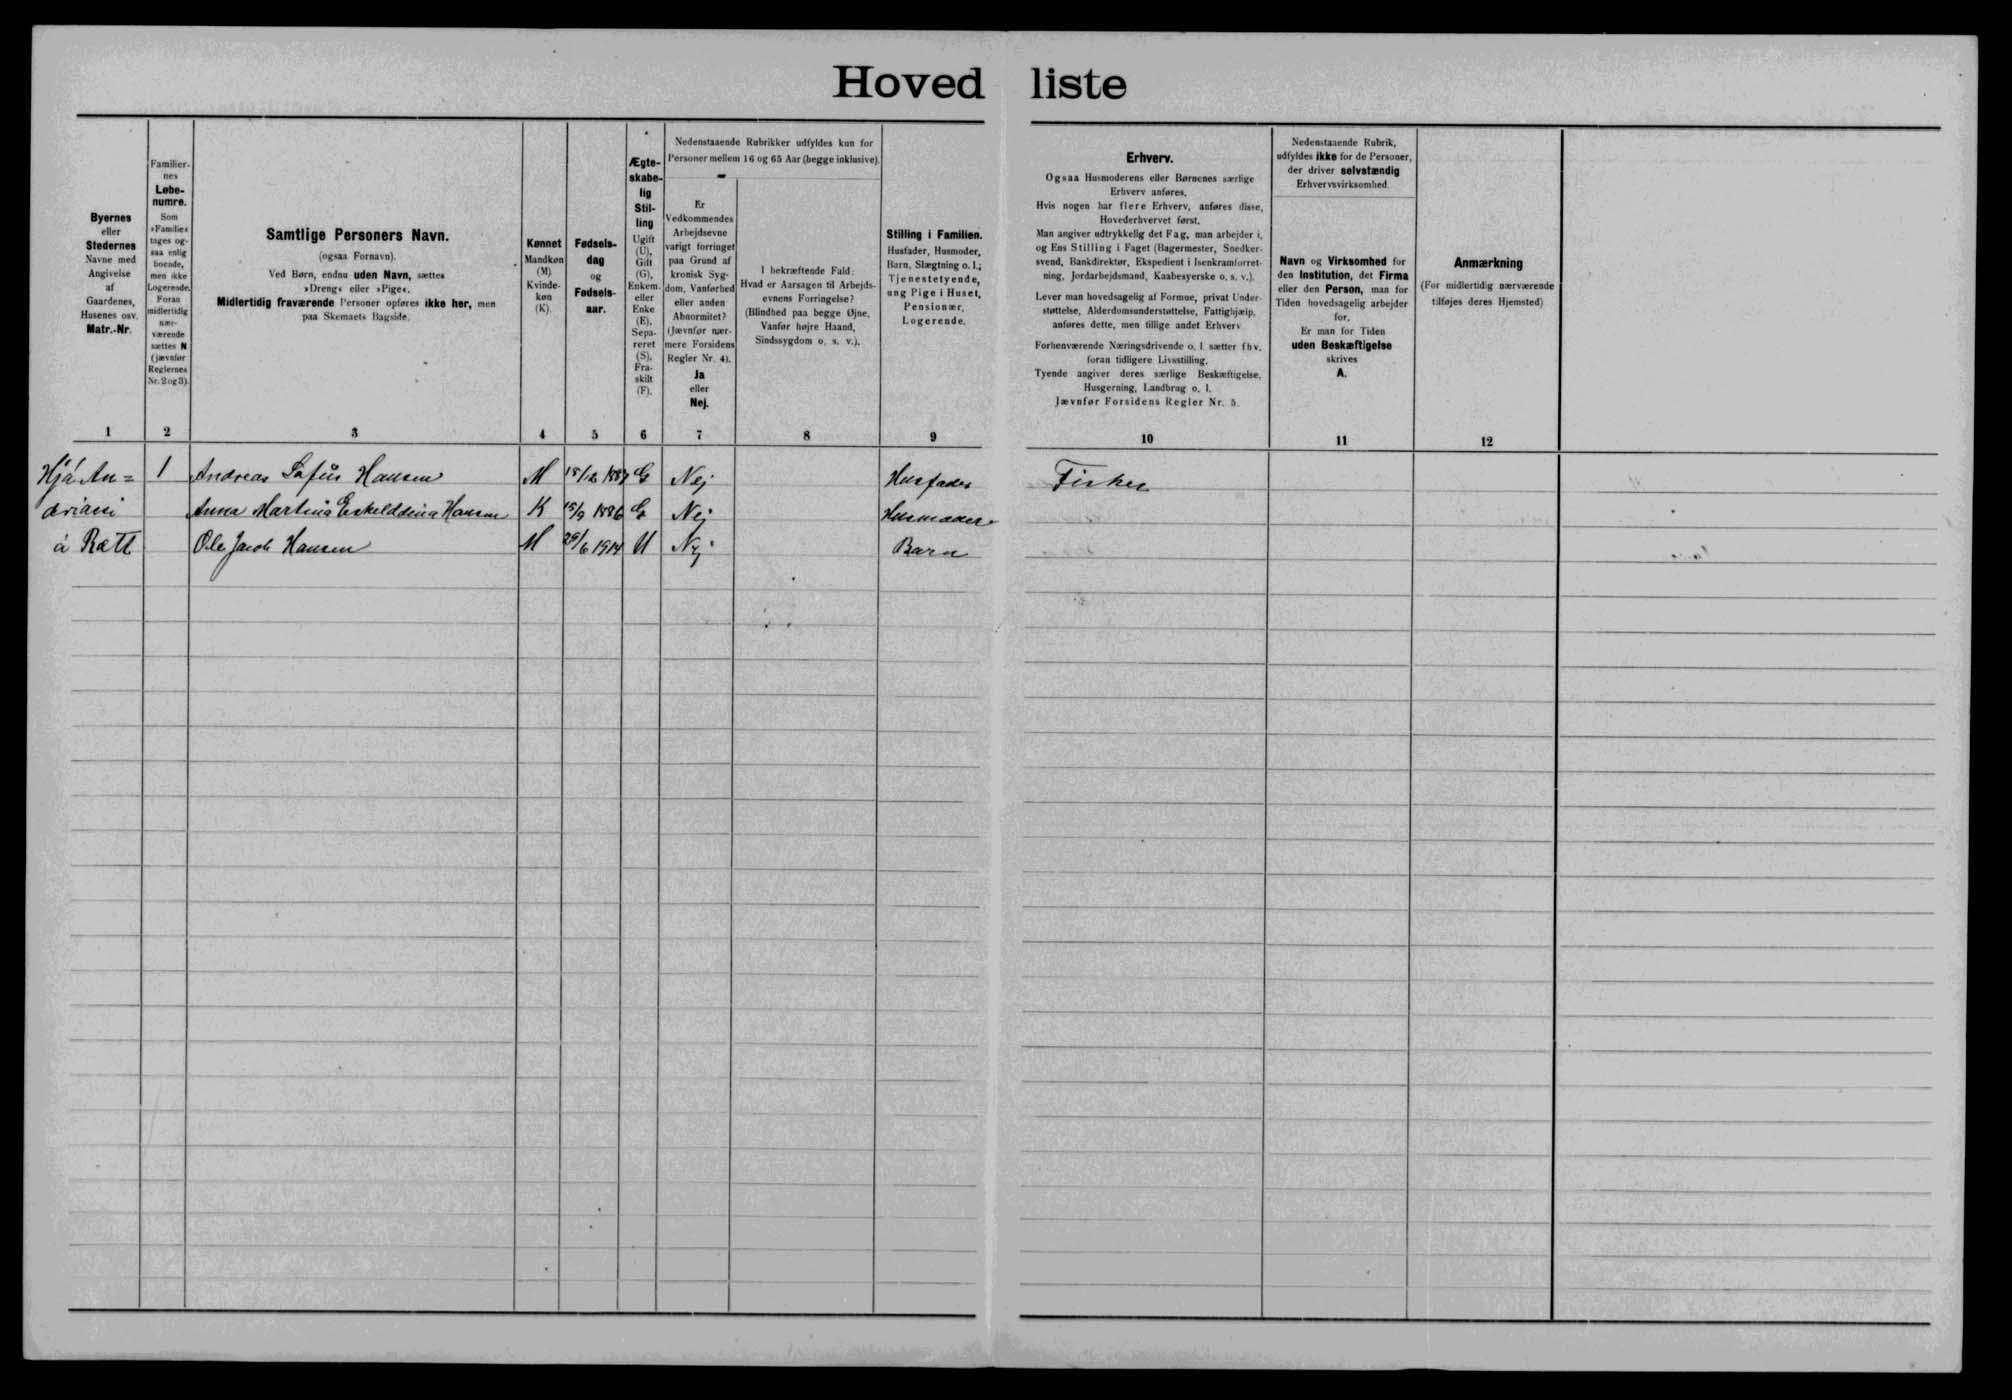 Hovedliste
Byernes
eller
Stedernes
Navne med
Angivelse
af
Gaardenes,
Husenes osv.
Matr.-Nr.
1
Familier-
nes
Løbe-
numre.
Som
»Familie«
tages og-
saa enlig
boende,
men ikke
Logerende.
Foran
midlertidig
nær-
værende
sættes N
(jævnfør
Reglernes
Nr. 2 og 3).
2
Samtlige Personers Navn.
(ogsaa Fornavn).
Ved Børn, endnu uden Navn, sættes
»Dreng« eller »Pige«.
Midlertidig fraværende Personer opføres ikke her, men
paa Skemaets Bagside.
3
Kønnet
Mandkøn
(M)
Kvinde-
køn
(K).
4
Fødsels-
dag
og
Fødsels-
aar.
5
Ægte-
skabe-
lig
Stil-
ling
Ugift
(U),
Gift
(G),
Enkem.
eller
Enke
(E),
Sepa-
reret
(S),
Fra-
skilt
(F).
6
Nedenstaaende Rubrikker udfyldes kun for
Personer mellem 16 og 65 Aar (begge inklusive).
Er
Vedkommendes
Arbejdsevne
varigt forringet
paa Grund af
kronisk Syg-
dom, Vanførhed
eller anden
Abnormitet?
(Jævnfør nær-
mere Forsidens
Regler Nr. 4).
Ja
eller
Nej.
7
I bekræftende Fald:
Hvad er Aarsagen til Arbejds-
evnens Forringelse?
(Blindhed paa begge Øjne,
Vanfør højre Haand,
Sindssygdom o. s. v.).
8
Stilling i Familien.
Husfader, Husmoder,
Barn, Slægtning o. l.;
Tjenestetyende,
ung Pige i Huset,
Pensionær,
Logerende.
9
Erhverv.
Ogsaa Husmoderens eller Børnenes særlige
Erhverv anføres.
Hvis nogen har flere Erhverv, anføres disse,
Hovederhvervet først.
Man angiver udtrykkelig det Fag, man arbejder i,
og Ens Stilling i Faget (Bagermester, Snedker-
svend, Bankdirektør, Ekspedient i Isenkramforret-
ning, Jordarbejdsmand, Kaabesyerske o. s. v.).
Lever man hovedsagelig af Formue, privat Under-
støttelse, Alderdomsunderstøttelse, Fattighjælp,
anføres dette, men tillige andet Erhverv
Forhenværende Næringsdrivende o. l. sætter fhv.
foran tidligere Livsstilling.
Tyende angiver deres særlige Beskæftigelse,
Husgerning, Landbrug o. l.
Jævnfør Forsidens Regler Nr. 5.
10
Nedenstaaende Rubrik,
udfyldes ikke for de Personer,
der driver selvstændig
Erhvervsvirksomhed
Navn og Virksomhed for
den Institution, det Firma
eller den Person, man for
Tiden hovedsagelig arbejder
for.
Er man for Tiden
uden Beskæftigelse
skrives
A.
11
Anmærkning
(For midlertidig nærværende
tilføjes deres Hjemsted)
12
Hjá An= 1 Andreas Sofus Hansen M 18/12 1887 G Nej Husfader Fisker
driasi Anna Martina Eskelddina Hansen K 15/9 1886 G Nej Husmoder
á Rætt Ole Jacob Hansen M 29/6 1914 U Nej Barn